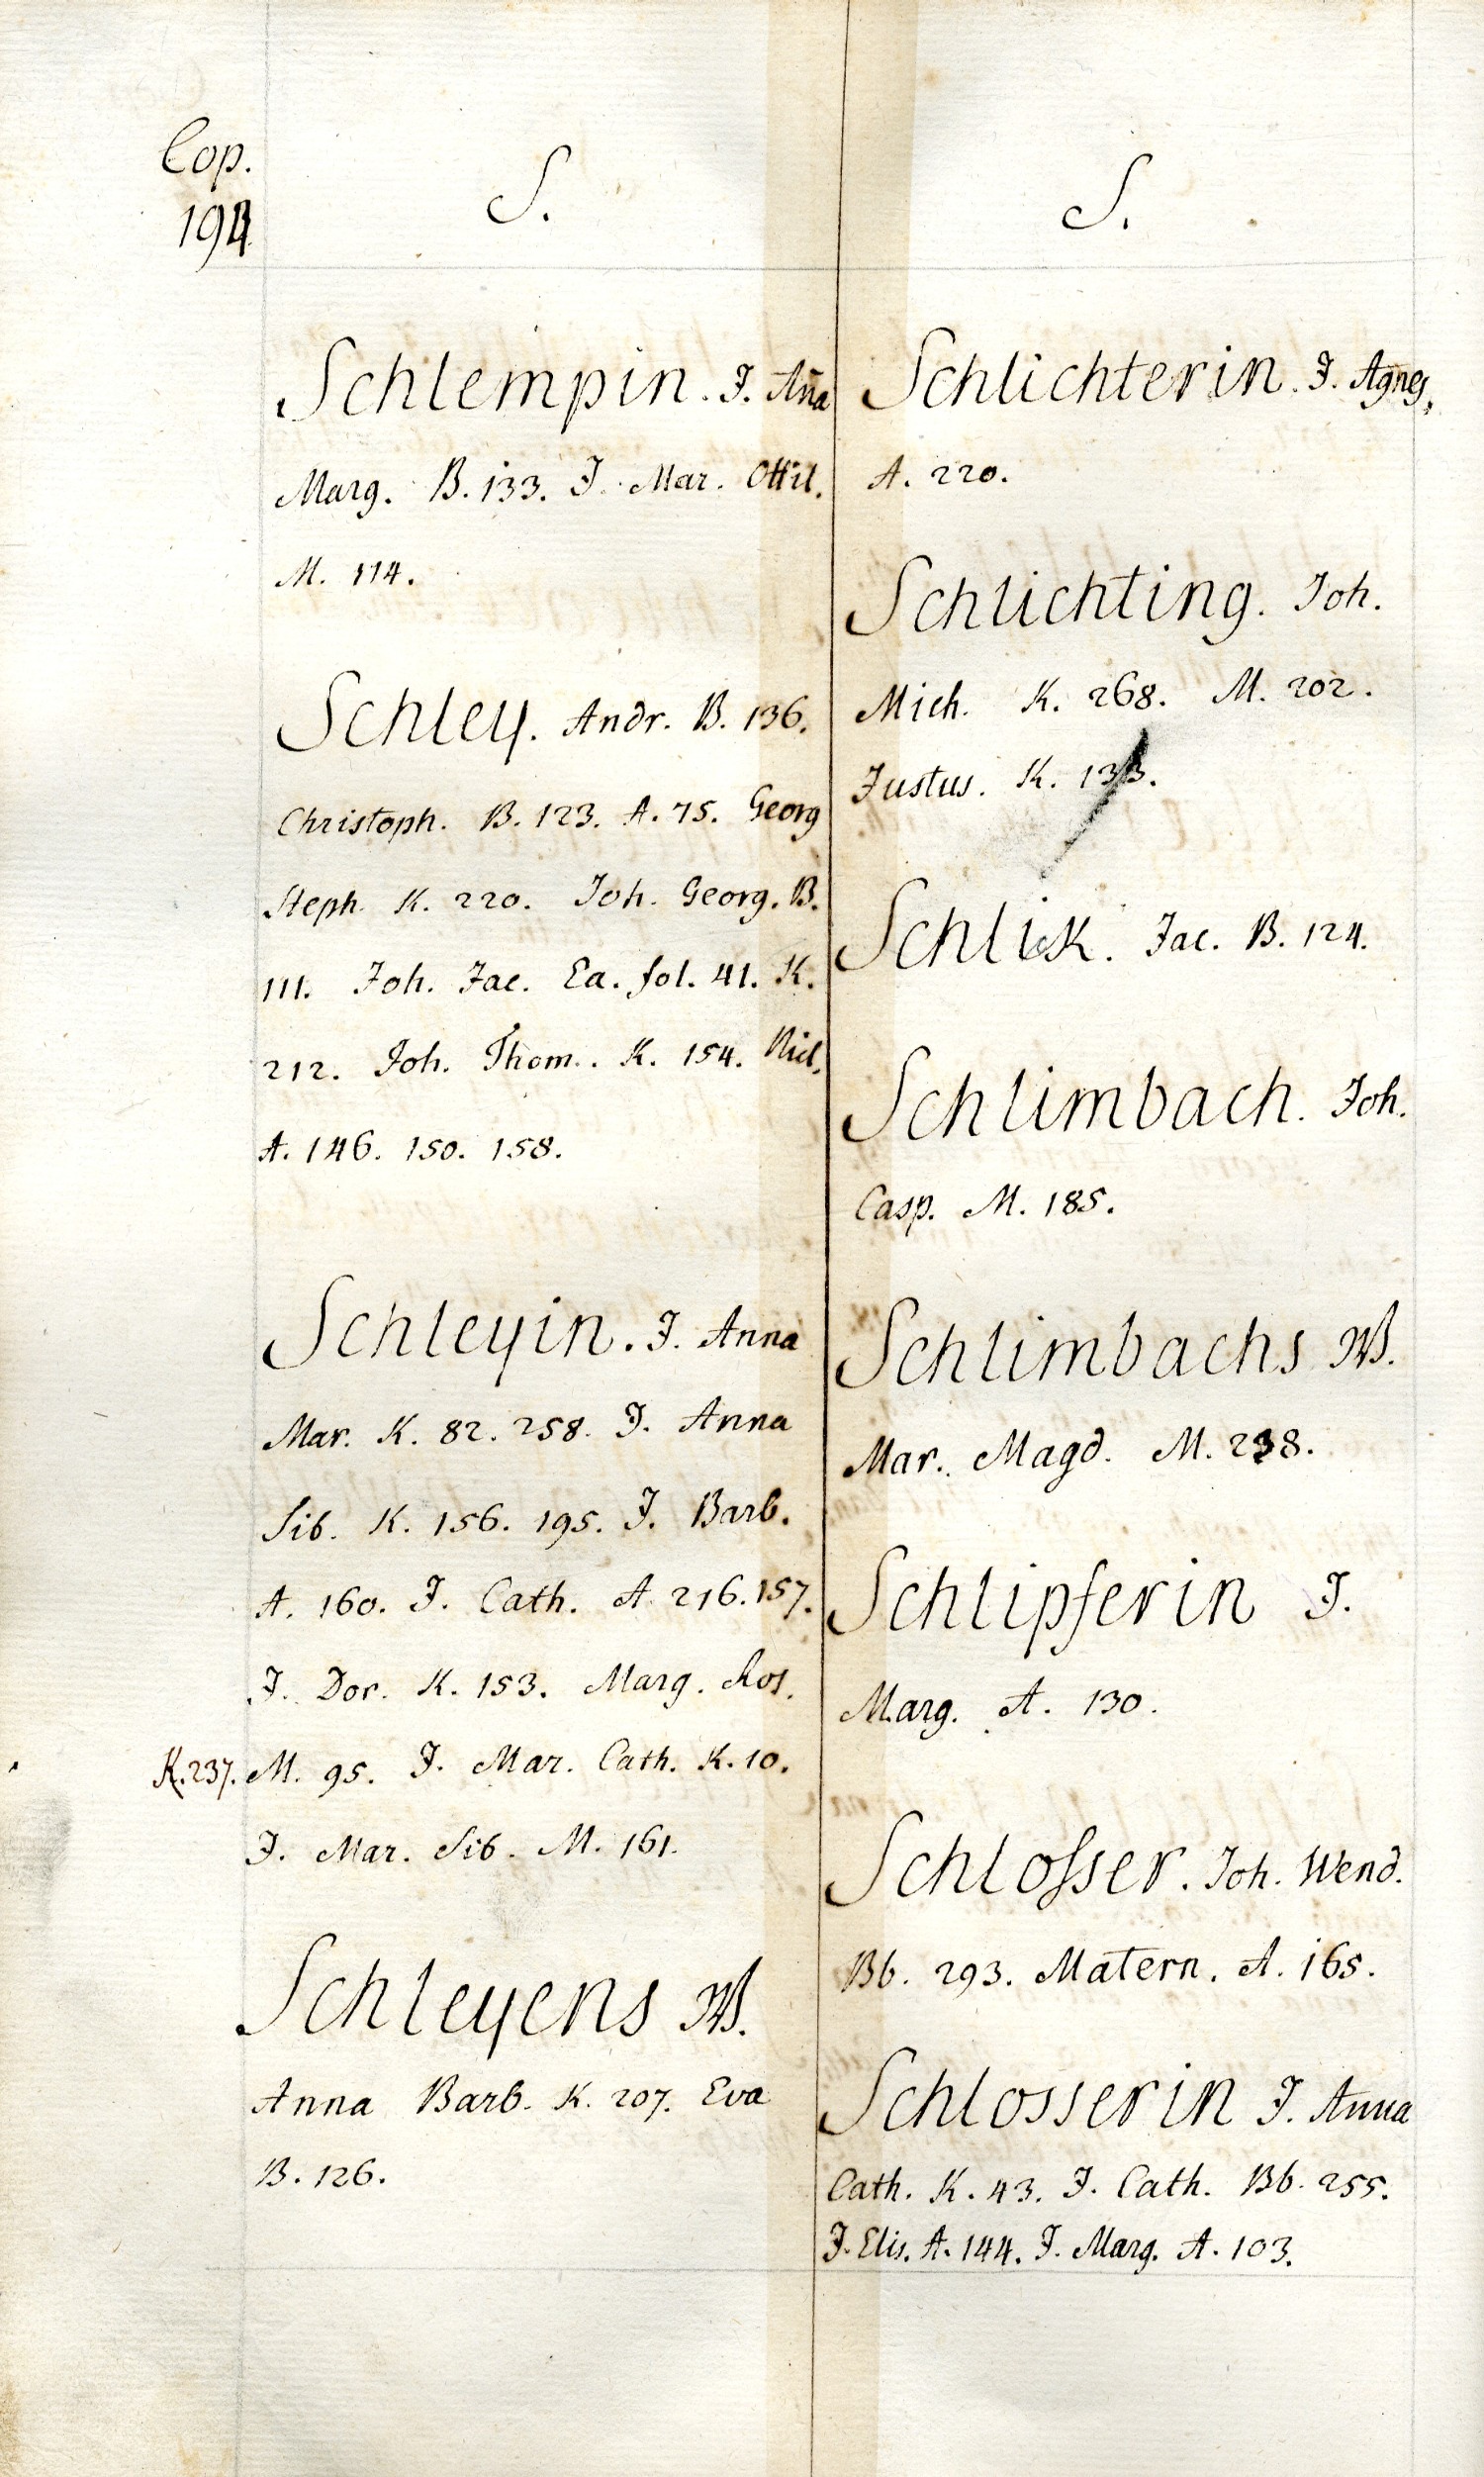 Cop.
194
S.
Schlempin. J. Aña
Marg. B. 133. J. Mar. Ottil.
M. 114.
Schley. Andr. B. 136.
Christoph. B. 123. A. 75. Georg
Steph. K. 220. Joh. Georg. B.
111. Joh. Jac. Ea. fol. 41. K.
212. Joh. Thom. K. 154. Nicl.
A. 146. 150. 158.
Schleyin. J. Anna
Mar. K. 82. 258. J. Anna
Sib. K. 156. 195. J. Barb.
A. 160. J. Cath. A. 216. 157.
J. Dor. K. 153. Marg. Ros.
K. 237. M. 95. J. Mar. Cath. K. 10.
J. Mar. Sib. M. 161.
Schleyens W.
Anna Barb. K. 207. Eva
B. 126.
S.
Schlichterin. J. Agnes.
A. 220.
Schlichting. Joh.
Mich. K. 268. M. 202.
Justus. K. 133.
Schlick. Jac. B. 124.
Schlimbach. Joh.
Casp. M. 185.
Schlimbachs W.
Mar. Magd. M. 238.
Schlipferin J.
Marg. A. 130.
Schloſser. Joh. Wend.
Bb. 293. Matern. A. 165.
Schlosserin J. Anna
Cath. K. 43. J. Cath. Bb. 255.
J. Elis. A. 144. J. Marg. A. 103.